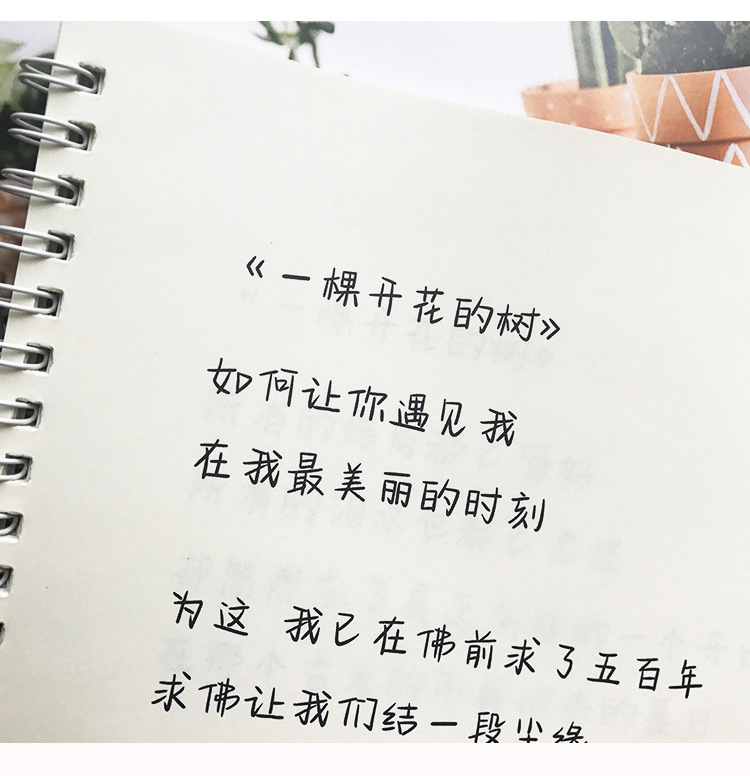 《一棵开花的树》
如何让你遇见我
在我最美丽的时刻
为这 我已在佛前求了五百年
求佛让我们结一段尘缘